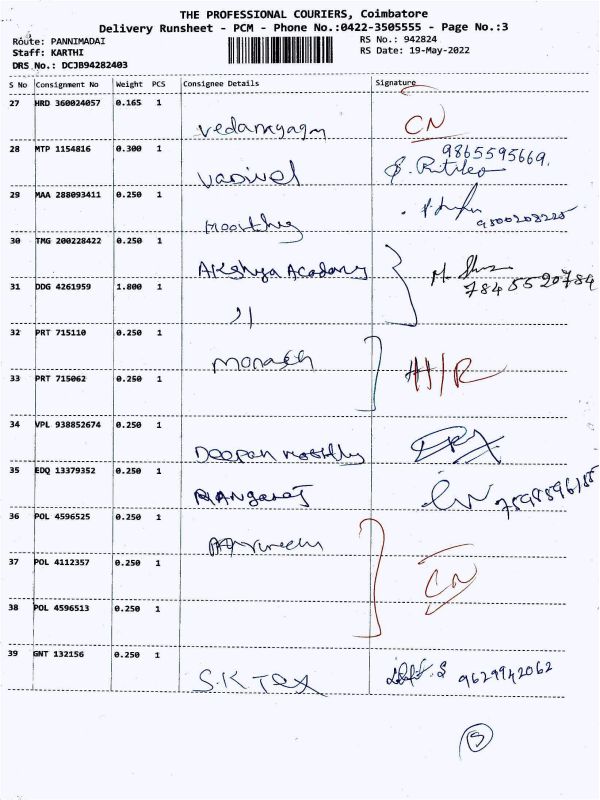 THE PROFESSIONAL COURIERS, Coimbatore
Delivery Runsheet - PCM - Phone No.:0422-3505555 - Page No.:3
Route: PANNIMADAI
RS No.: 942824
Staff: KARTHI
RS Date: 19-May-2022
DRS No.: DCJB94282403
S No Consignment No Weight PCS Consignee Details Signature
27 HRD 360024057 0.165 1
CN
28 MTP 1154816 0.300 1
9865595669.
29 MAA 288093411 0.250 1
Moorthy
30 TMG 200228422 0.250 1
Akshya Academy
31 DDG 4261959 1.800 1
7845520784
32 PRT 715110 0.250 1
H/R
33 PRT 715062 0.250 1
34 VPL 938852674 0.250 1
Deepan moorthy
35 EDQ 13379352 0.250 1
Rangaraj
36 POL 4596525 0.250 1
37 POL 4112357 0.250 1
CN
38 POL 4596513 0.250 1
39 GNT 132156 0.250 1
S.K Tex 9629942062